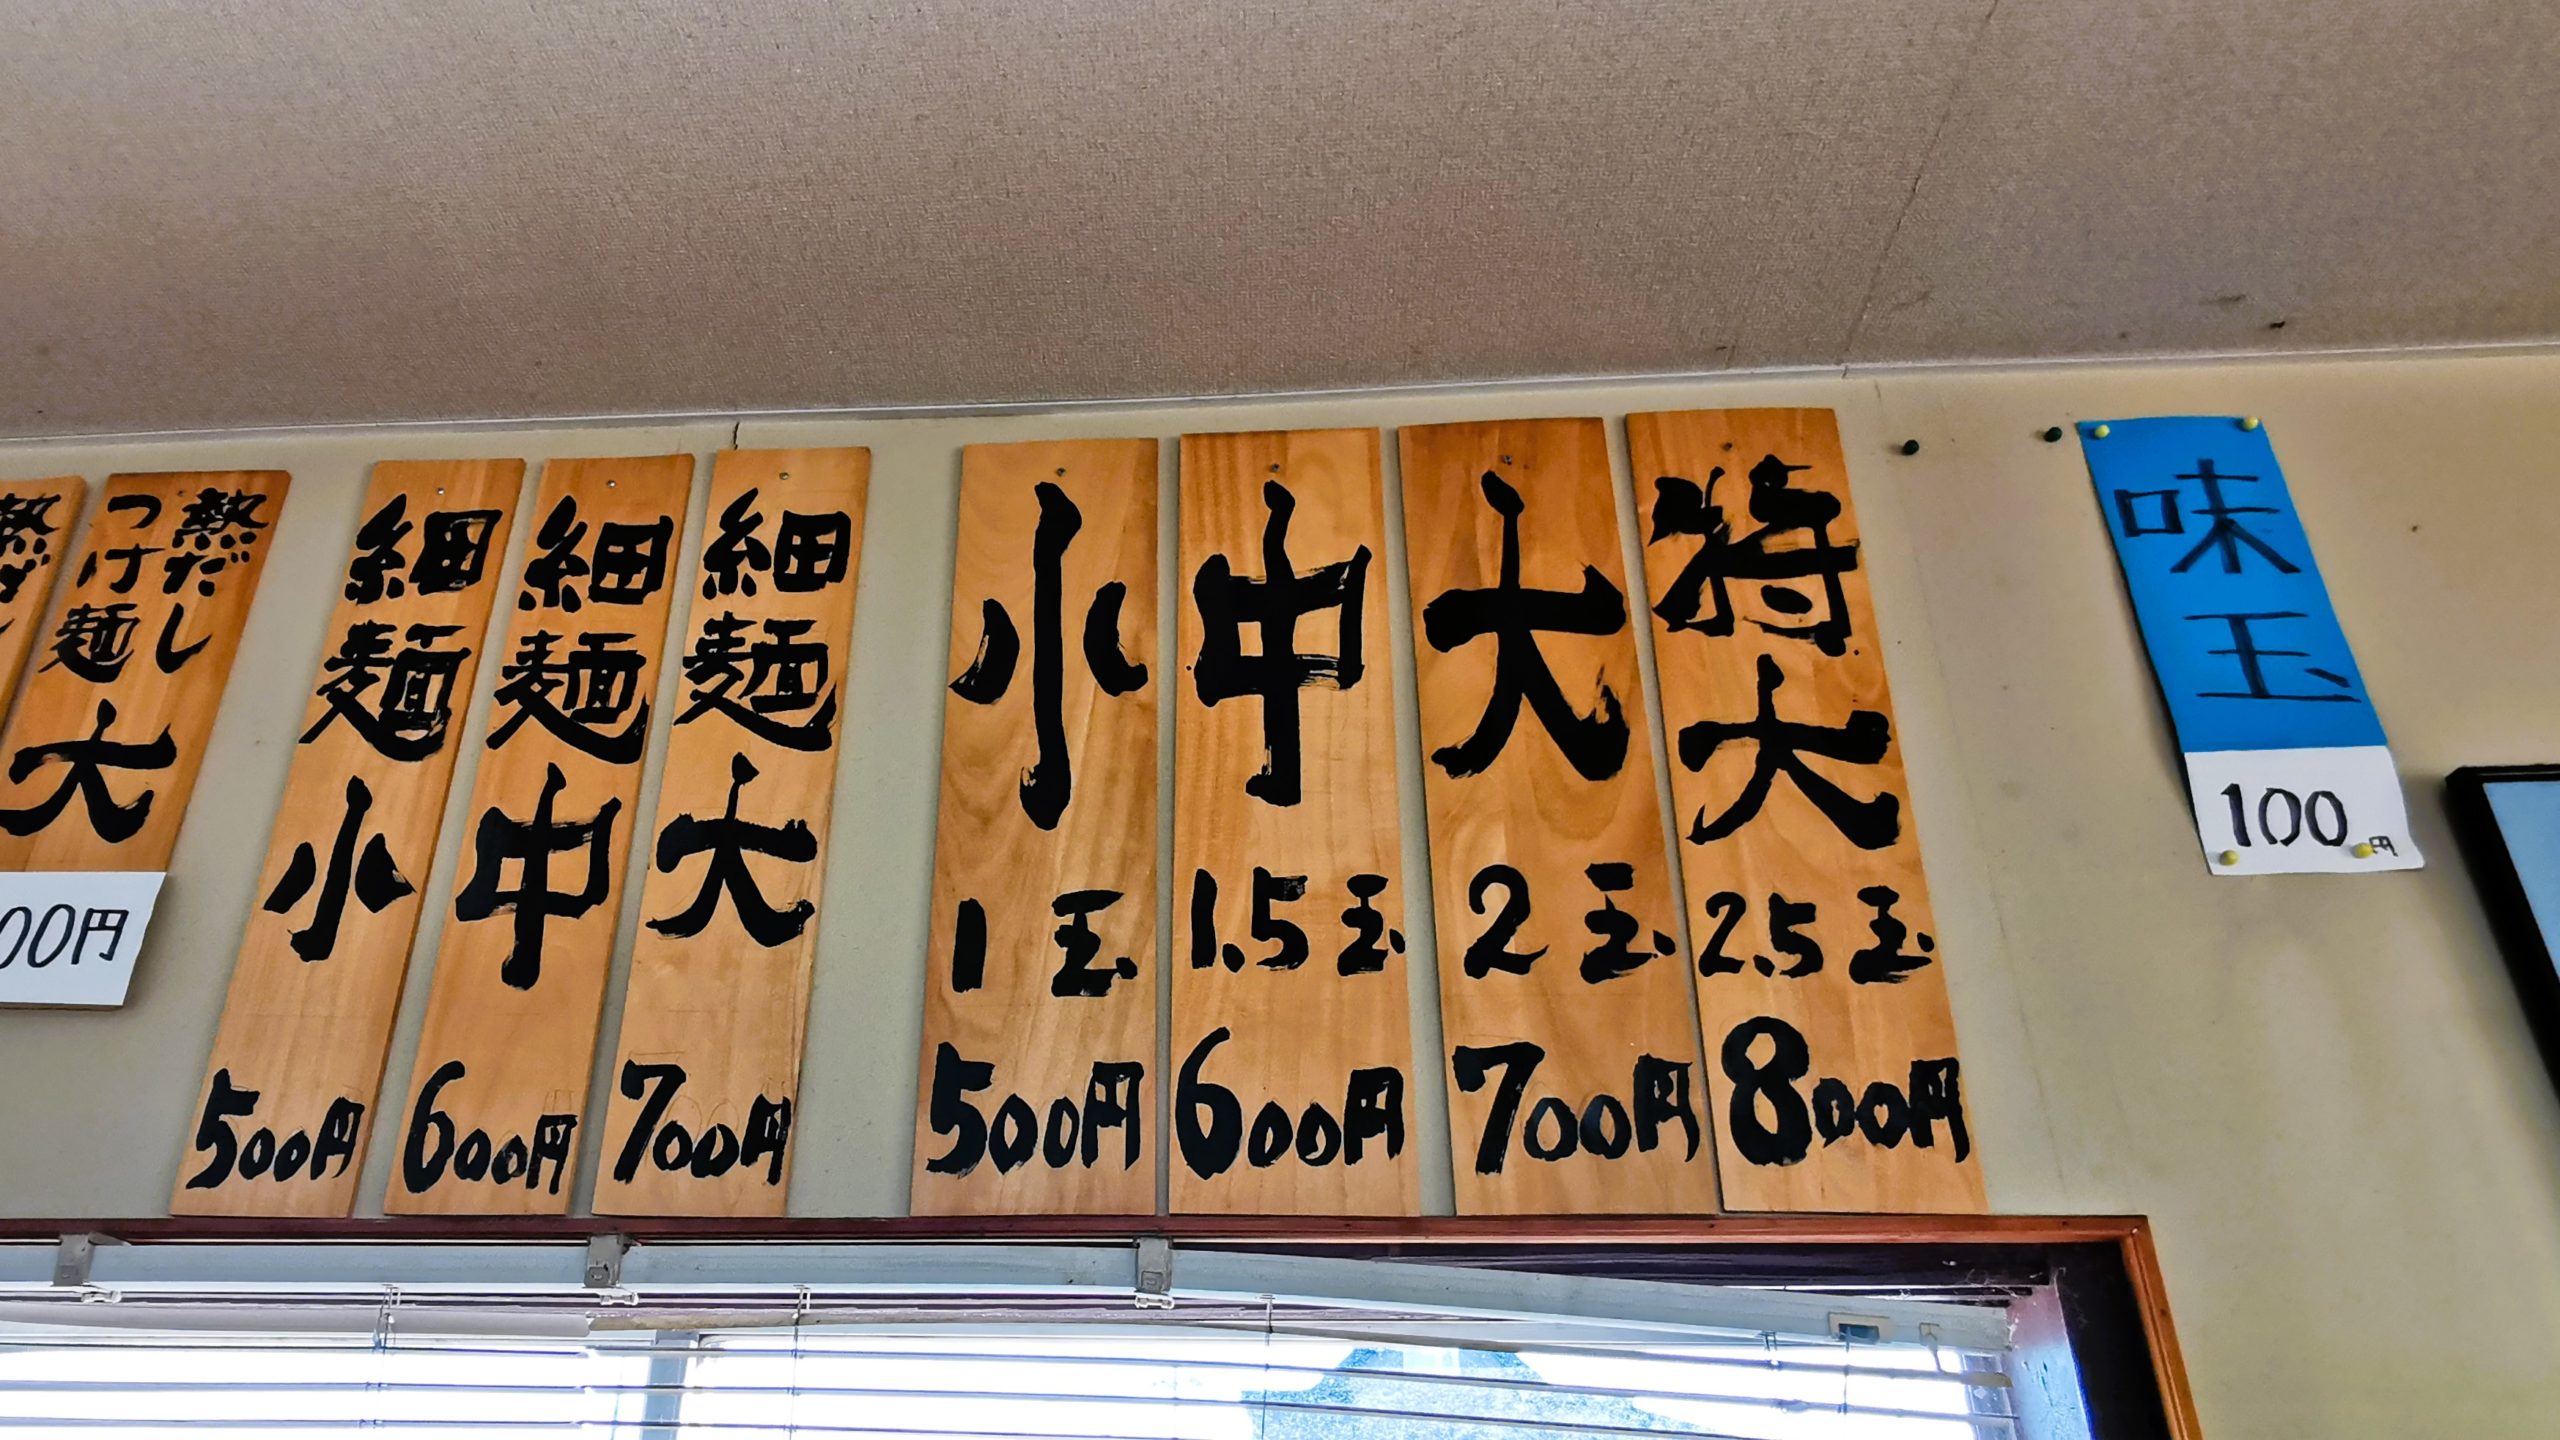 熱だし
つけ麺
大
00円
細麺
小
500円
細麺
中
600円
細麺
大
700円
小
1玉
500円
中
1.5玉
600円
大
2玉
700円
特大
2.5玉
800円
味玉
100円